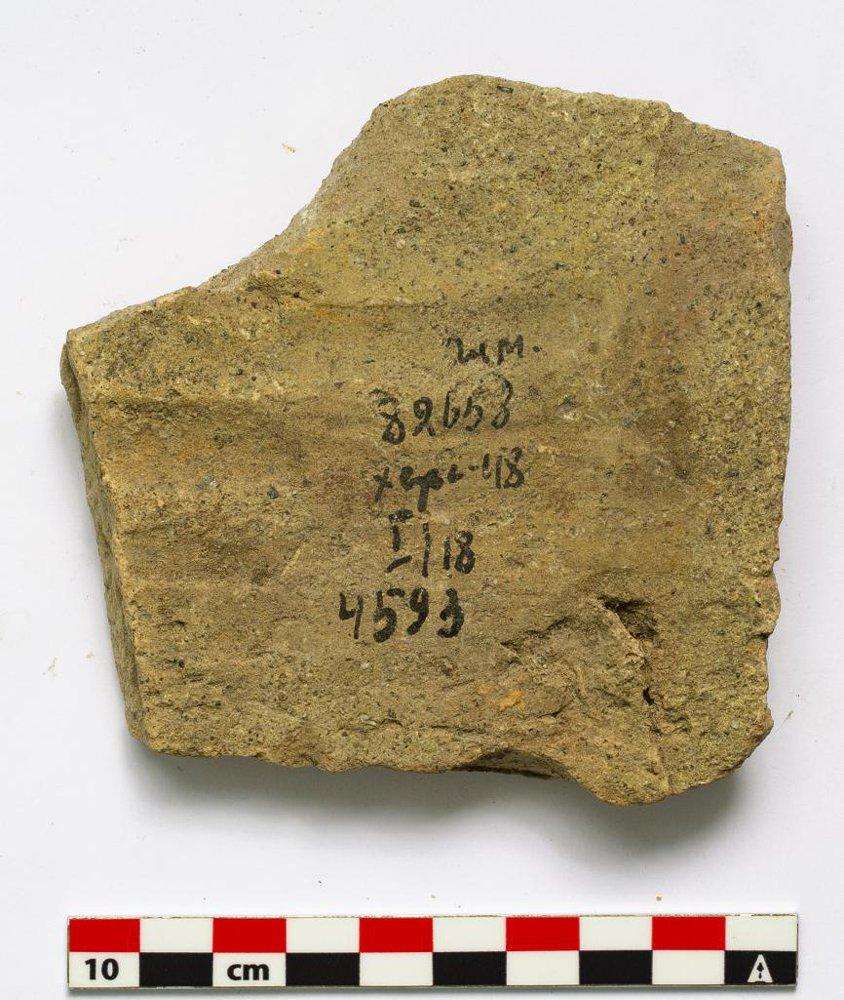 82658
Херс-48
I/18
4593
10 cm